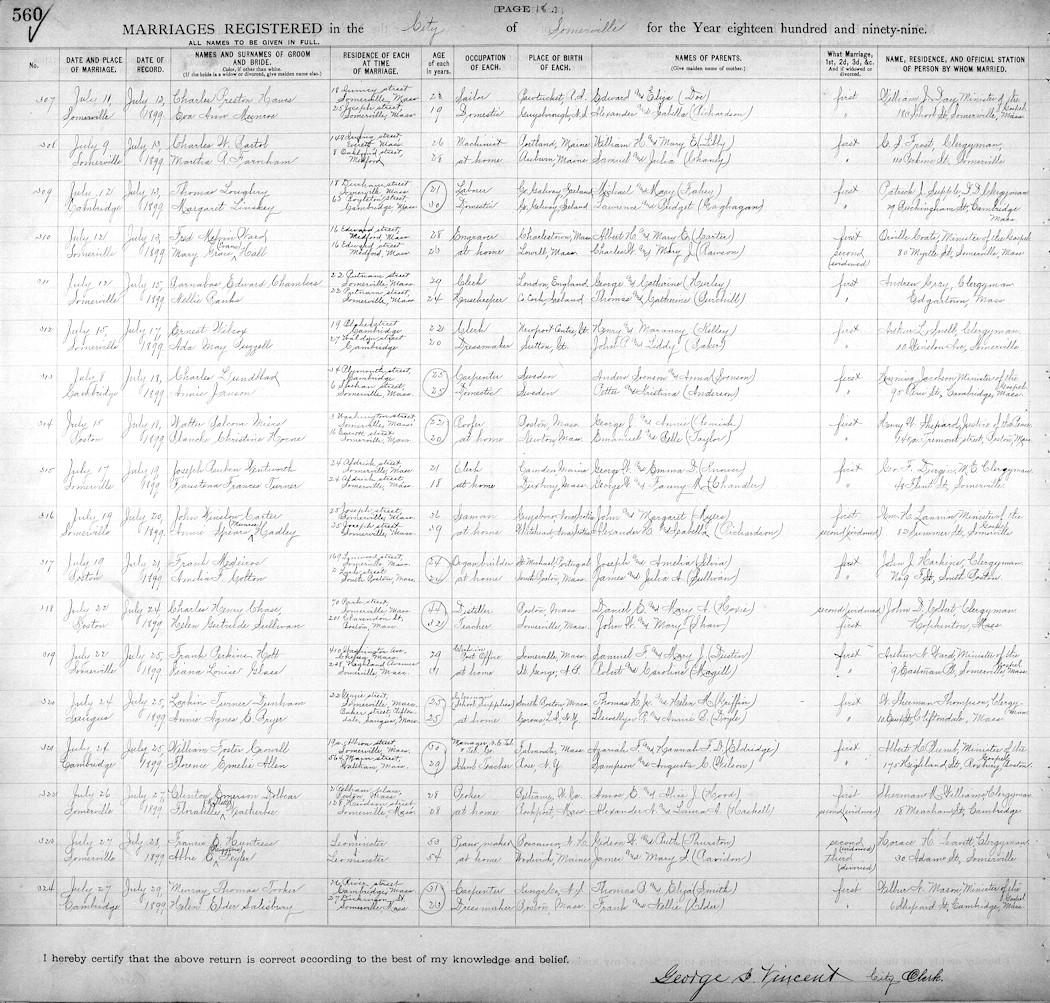 560
[PAGE 18.]
MARRIAGES REGISTERED in the City of Somerville for the Year eighteen hundred and ninety-nine.
ALL NAMES TO BE GIVEN IN FULL.
No. DATE AND PLACE OF MARRIAGE. DATE OF RECORD. NAMES AND SURNAMES OF GROOM AND BRIDE. Color, if other than white. (If the bride is a widow or divorced, give maiden name also.) RESIDENCE OF EACH AT TIME OF MARRIAGE. AGE of each in years. OCCUPATION OF EACH. PLACE OF BIRTH OF EACH. NAMES OF PARENTS. (Give maiden name of mother.) What Marriage, 1st, 2d, 3d, &c. And if widowed or divorced. NAME, RESIDENCE, AND OFFICIAL STATION OF PERSON BY WHOM MARRIED.
307 July 11, July 12, Charles Preston Hawes Somerville, Mass Sailor Pawtucket, R.I. Edward and Eliza (Doe) first William J. Day, Minister of the Gospel
Somerville 1899 Eva Ann Munroe 25 Joseph street, Somerville, Mass 19 Domestic Guysborough, N.S. Alexander and Isabella (Richardson) " Somerville, Mass
308 July 9 July 13, Charles W. 26 Machinist Portland, Maine William H. and Mary E. (Libby) first C. S. Frost, Clergyman,
Somerville 1899 Martha A. Farnham Medford 28 at home Auburn Maine Samuel and Julia (Chaney) " Somerville
309 July 12 July 13, Thomas Loughry 18 Durham street Somerville, Mass 21 Laborer Co. Galway, Ireland Michael and Mary (Fahey) first Patrick J. Supple, D.D. Clergyman
Cambridge 1899 Margaret Linskey 65 Boylston street, Cambridge, Mass 30 Domestic Co. Galway, Ireland Laurence and Bridget (Gaghagan) " 79 Buckingham St, Cambridge Mass
310 July 12 July 13, Fred Melvin Ward 16 Edward street Medford, Mass 28 Engraver Charlestown, Mass Albert H. and Mary E. (Carter) first Orville Coats, Minister of the Gospel
Somerville 1899 Mary Grace Hall 16 Edward street Medford, Mass 23 at home Lowell, Mass. Charles H. and Mary J. (Rawson) second (widowed) 80 Myrtle St, Somerville, Mass
311 July 12 July 15, Barnabas Edward Chambers 22 Putnam street Somerville, Mass 29 Clerk London, England George and Catherine (Hurley) first Andrew Gray, Clergyman
Somerville 1899 Nellie Banks 22 Putnam street, Somerville, Mass 24 Housekeeper Co. Cork, Ireland Thomas and Catherine " Edgartown, Mass
312 July 15, July 17, Ernest Wilcox Cambridge 22 Clerk Newport Centre, Vt. Henry and Maraney (Kelley) first Arthur L. Snell, Clergyman,
Somerville 1899 Ada May Buzzell Cambridge 20 Dressmaker Sutton, Vt. John A. and Liddy (Baker) " Winslow Ave, Somerville
313 July 8 July 18, Charles Lundblad 34 Plymouth street, Cambridge 25 Carpenter Sweden Anders Svenson and Anna (Svenson) first Jackson Minister of the Gospel
Cambridge 1899 Annie Janson Somerville, Mass. 25 Domestic Sweden and Cristina (Anderson) " Cambridge, Mass.
314 July 15 July 18, Walter Balcom Mills 3 Washington street, Somerville, Mass 22 Roofer Boston, Mass George J. and Annie first Henry W. Shepard, Justice of the Peace
Boston 1899 Blanche Christine Horne Somerville, Mass 20 at home Newton, Mass. Emanuel and Belle (Taylor) " Tremont street, Boston, Mass
315 July 17 July 19, Joseph Reuben Wentworth 24 Aldrich street, Somerville, Mass 21 Clerk Camden Maine George W. and Emma D. first Geo. F. Durgin, M.E. Clergyman
Somerville 1899 Faustena Frances Turner 24 Aldrich street, Somerville, Mass 18 at home Duxbury, Mass. George W. and Fanny R. (Chandler) " Flint St, Somerville
316 July 19 July 20, John Winslow Carter 25 Joseph street, Somerville, Mass 36 Seaman Guysboro, Nova Scotia John and Margaret (Myers) first Wm. H. Lannin Minister of the Gospel
Somerville 1899 Annie Spears (Munroe) Hadley 25 Joseph street Somerville, Mass 39 at home Nova Scotia Alexander H. and Isabella (Richardson) second (widowed) 82 Sumner St, Somerville
317 July 19 July 21, Frank Medeiros Somerville, Mass 24 Organbuilder St. Michael, Portugal Joseph and Amelia (Silva) first John J. Harkins, Clergyman,
Boston 1899 Amelia F. Cotton South Boston, Mass 24 at home South Boston, Mass James and Julia A. (Sullivan) " South Boston
318 July 22 July 24 Charles Henry Chase, 70 Park street Somerville, Mass 44 Distiller Boston, Mass Daniel E. and Mary A. (Hoxie) second (widowed) John D. Colbert Clergyman
Boston 1899 Helen Gertrude Sullivan 201 Clarendon St, Boston, Mass 32 Teacher Somerville, Mass. John W. and Mary (Shaw) first Hopkinton, Mass
319 July 22 July 25, Frank Perkins Hott Washington Ave. Chelsea Mass 29 Post Office Somerville, Mass Samuel F. and Mary J. (Dustin) first Arthur N. Ward, Minister of the Gospel
Somerville 1899 Diana Louise Glass 248 Highland Avenue Somerville, Mass 31 at home St. George, N.B. Robert and Caroline (Magell) " 9 Eastman Pl, Somerville, Mass
320 July 24 July 25, Larkin Turner Dunham Somerville, Mass 25 Salesman (School Supplies) South Boston, Mass Thomas H. Jr. and Helen M. (Griffin) first W. Sherman Thompson, Clergyman
Saugus 1899 Anne Agnes E. Pryer Baker street, Cliftondale, Saugus, Mass 25 at home L.I. N.Y. Llewellyn P. and Annie B. (Doyle) " Cliftondale, Mass
321 July 24 July 25 William Foster Carvill Somerville, Mass. 30 Manager, N.E. Tel. & Tel. Co. Falmouth, Mass Azariah F. and Hannah F. D. (Eldridge) first Albert H. Plumb, Minister of the Gospel
Cambridge 1899 Florence Emelie Allen 564 Main street, Waltham, Mass. 29 School Teacher N.Y. Sampson and Augusta C. (Wilson) " Highland St, Roxbury, Boston
322 July 26 July 27, Clinton Emerson Dollcar Boston Mass 28 Amos E. and Alice J. (Hood) first Sherman R. Williams, Clergyman
Somerville 1899 Florabelle Batherbee 128 Hudson street Somerville, Mass 28 at home Rockport, Mass Alexander N. and Laura A. (Haskell) second (widowed) 18 Meacham St, Cambridge
323 July 27 July 28, Francis E. Huntress Leominster 53 Piano maker N.H. Gideon W. and Ruth (Thurston) second (widowed) Horace H. Leavitt Clergyman,
Somerville 1899 Abbie E. Wyler Leominster 54 at home Maine James and Mary S. (Davidson) third (divorced) 30 Adams St, Somerville
324 July 27 July 29, Murray Thomas Tooker 76 River street Cambridge, Mass 31 Carpenter Kings Co, N.S. Thomas B. and Eliza (Smith) first Wilbur N. Mason, Minister of the Gospel
Cambridge 1899 Helen Elder Salisbury 27 Dickinson St. Somerville, Mass 23 Dressmaker Boston, Mass. Frank and Nellie (Elder) " 6 Shepard St, Cambridge, Mass
I hereby certify that the above return is correct according to the best of my knowledge and belief.
George I. Vincent City Clerk.